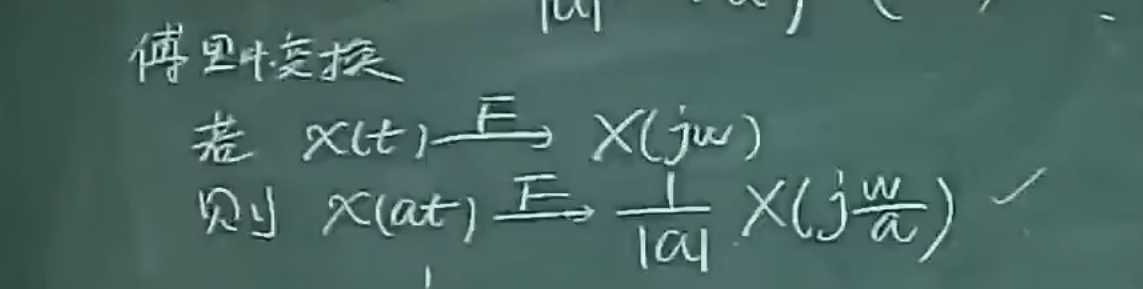 傅里叶变换
若 x(t) \xrightarrow{F} X(jw)
则 x(at) \xrightarrow{F} \frac{1}{|a|} X(j\frac{w}{a}) ✓